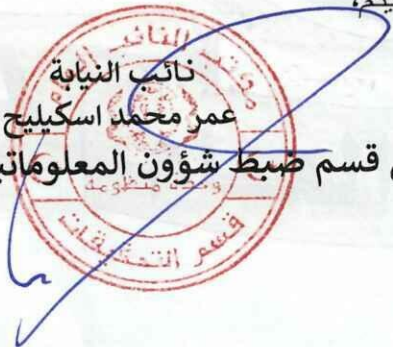 نائب النيابة
عمر محمد اسكيليح
قسم ضبط شؤون المعلوماتية
مكتب النائب العام
قسم التحقيقات